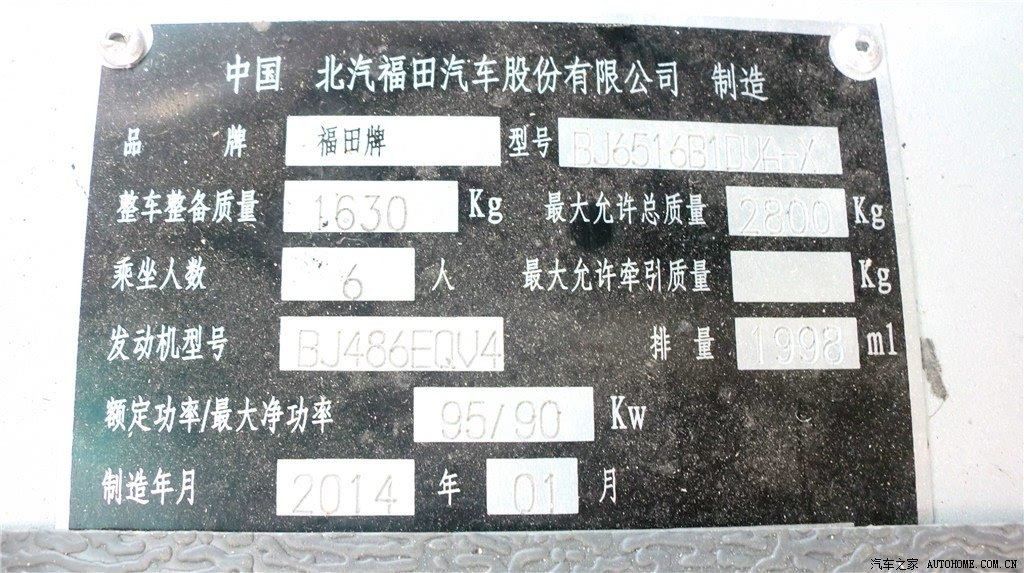 中国 北汽福田汽车股份有限公司 制造
品 牌 福田牌 型号 BJ6516B1DVA-X
整车整备质量 1630 Kg 最大允许总质量 2800 Kg
乘坐人数 6 人 最大允许牵引质量 Kg
发动机型号 BJ486EQV4 排 量 1998 ml
额定功率/最大净功率 95/90 Kw
制造年月 2014 年 01 月
汽车之家 AUTOHOME.COM.CN